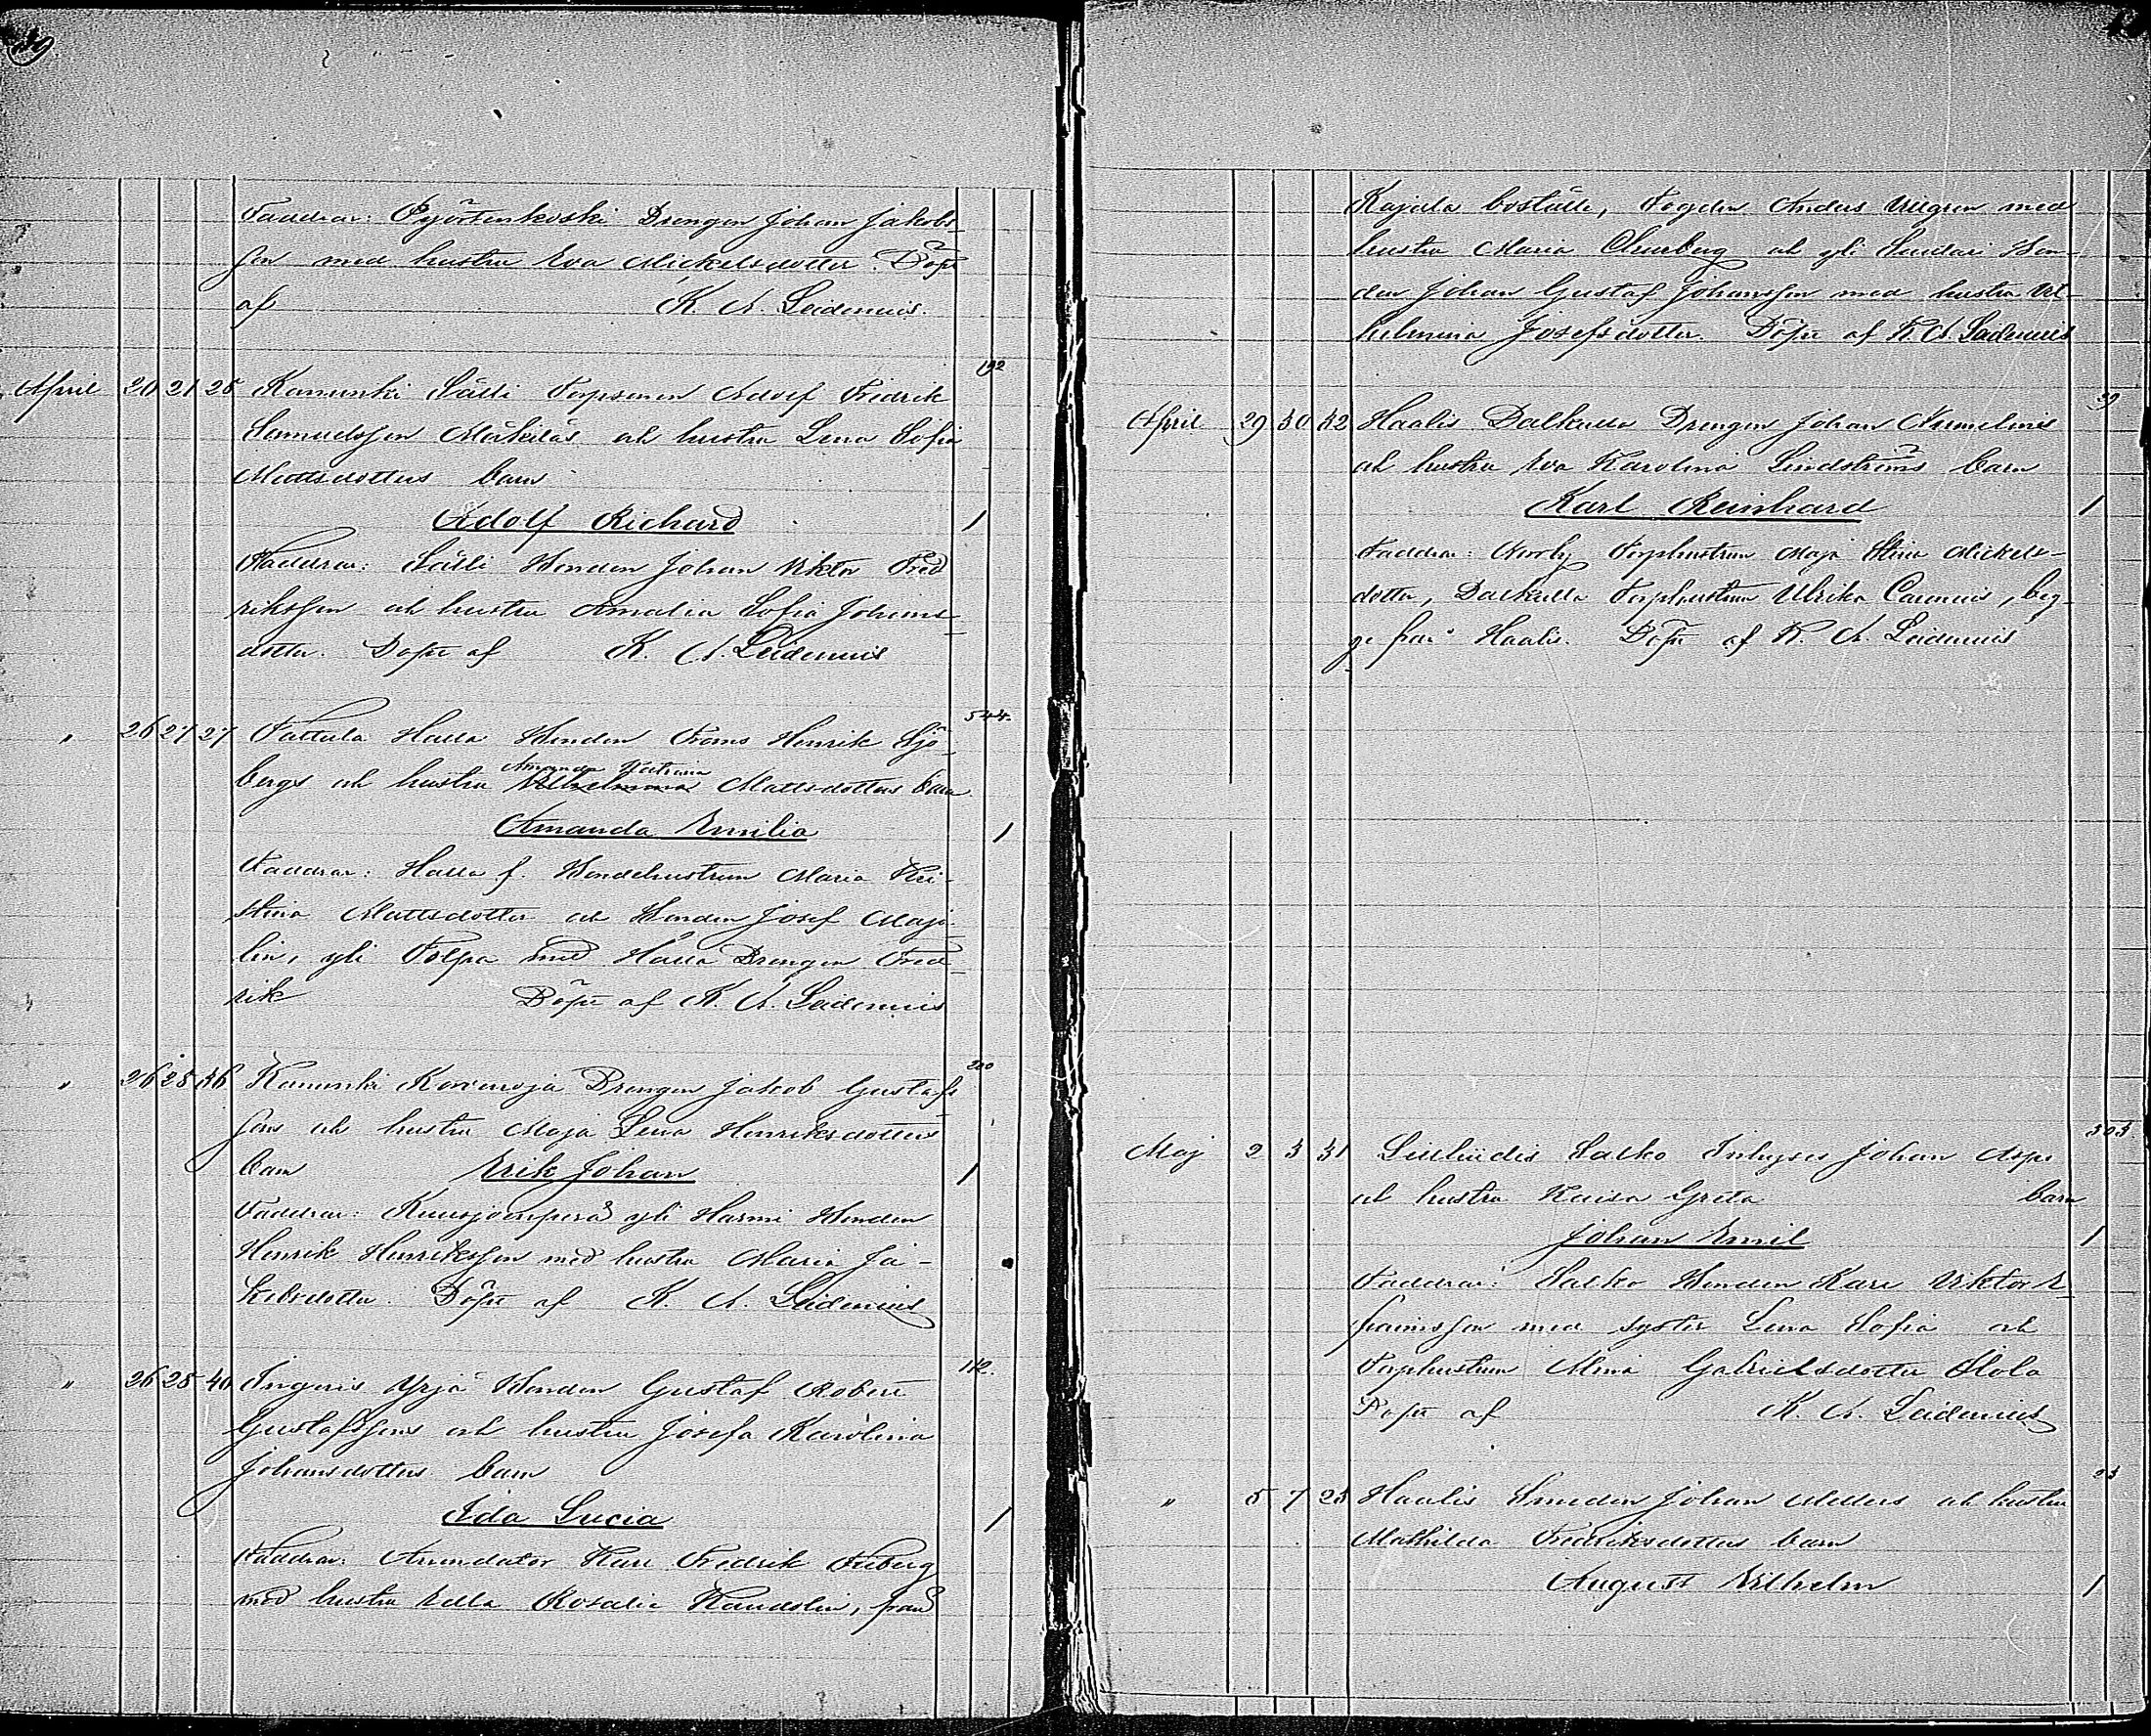 39
Faddrar: Pyörönkoski Drengen Johan Jakobs-
son med hustru Eva Mickelsdotter. Döpt
af K. A. Leidenius.
192
April 20 21 28 Kanunki Sälli Torparen Adolf Fredrik
Samuelsson Mäkiläs och hustru Lena Sofia
Mattsdotters barn
Adolf Richard 1
Faddrar: Sälli Bonden Johan Viktor Fred
riksson och hustru Amalia Sofia Johans-
dotter. Döpt af K. A. Leidenius
544.
" 26 27 27 Pattula Halla Bonden Frans Henrik Sjö-
bergs och hustru Vilhelmina Amanda Mattsdotters barn
Amanda Emilia 1
Faddrar: Halla f. Bondehustrun Maria Kri-
stina Mattsdotter och Bonden Josef Maja-
lin, yli Tolpa med Halla Drengen Fred-
rik Döpt af K. A. Leidenius
200
" 26 28 36 Kanunki Korvenoja Drengen Jakob Gustafs-
sons och hustru Maja Lena Henriksdotters
barn Erik Johan 1
Faddrar: yli Harmi Bonden
Henrik Henriksson med hustru Maria Ja-
kobsdotter. Döpt af K. A. Leidenius
112.
" 26 28 40 Ingeris Yrjä Bonden Gustaf Robert
Gustafssons och hustru Josefa Karolina
Johansdotters barn
Ida Lucia 1
Faddrar: Arrendator Karl Fredrik Friberg
med hustru Rosalie från
Kajala boställe, Fogden Anders med
hustru Maria och yli Bon-
den Johan Gustaf Johansson med hustru Vil-
helmina Josefsdotter. Döpt af K. A. Leidenius
39
April 29 30 32 Haalis Dalkulla Drengen Johan
och hustru Eva Karolina Lindströms barn
Karl Reinhard 1
Faddrar: Torphustrun Maja Stina Mickels-
dotter, Dalkulla Torphustrun Ulrika Carenius, beg-
ge från Haalis. Döpt af K. A. Leidenius
303.
Maj 2 3 31 Salko Inhyses Johan Asps
och hustru Kaisa Greta barn
Johan Emil 1
Faddrar: Salko Bonden Karl Viktor E-
fraimsson med syster Lena Sofia och
Torphustrun Mina Gabrielsdotter
Döpt af K. A. Leidenius
23
" 5 7 23 Haalis Smeden Johan och hustru
Mathilda Fredriksdotters barn
August Vilhelm 1